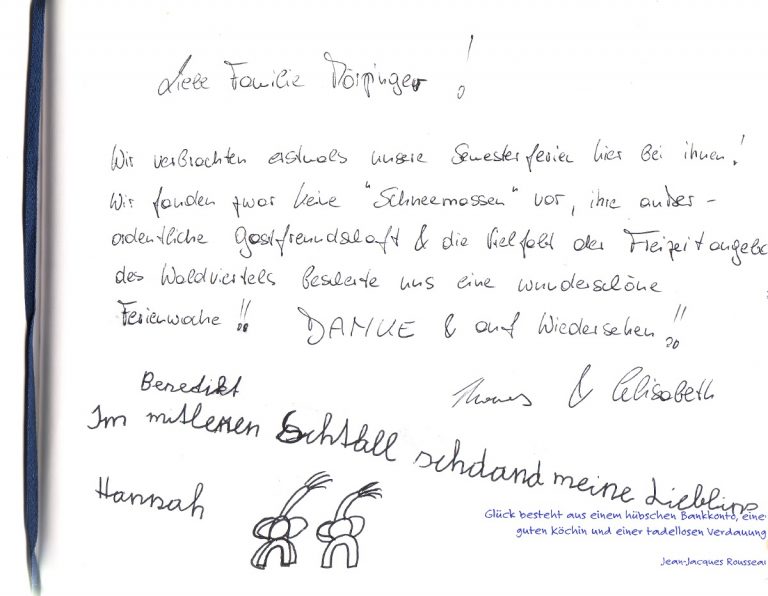 Liebe Familie Dörpinger !
Wir verbrachten erstmals unsere Semesterferien hier bei ihnen!
Wir fanden zwar keine "Schneemassen" vor, ihre außer-
ordentliche Gastfreundschaft & die Vielfalt der Freizeitangebo
des Waldviertels bescherte uns eine wunderschöne
Ferienwoche !! DANKE & auf Wiedersehen !!
Thomas & Elisabeth
Benedikt
Im mitleren schtall schdand meine Lieblins
Hannah
Glück besteht aus einem hübschen Bankkonto, eine
guten Köchin und einer tadellosen Verdauung
Jean-Jacques Rousseau